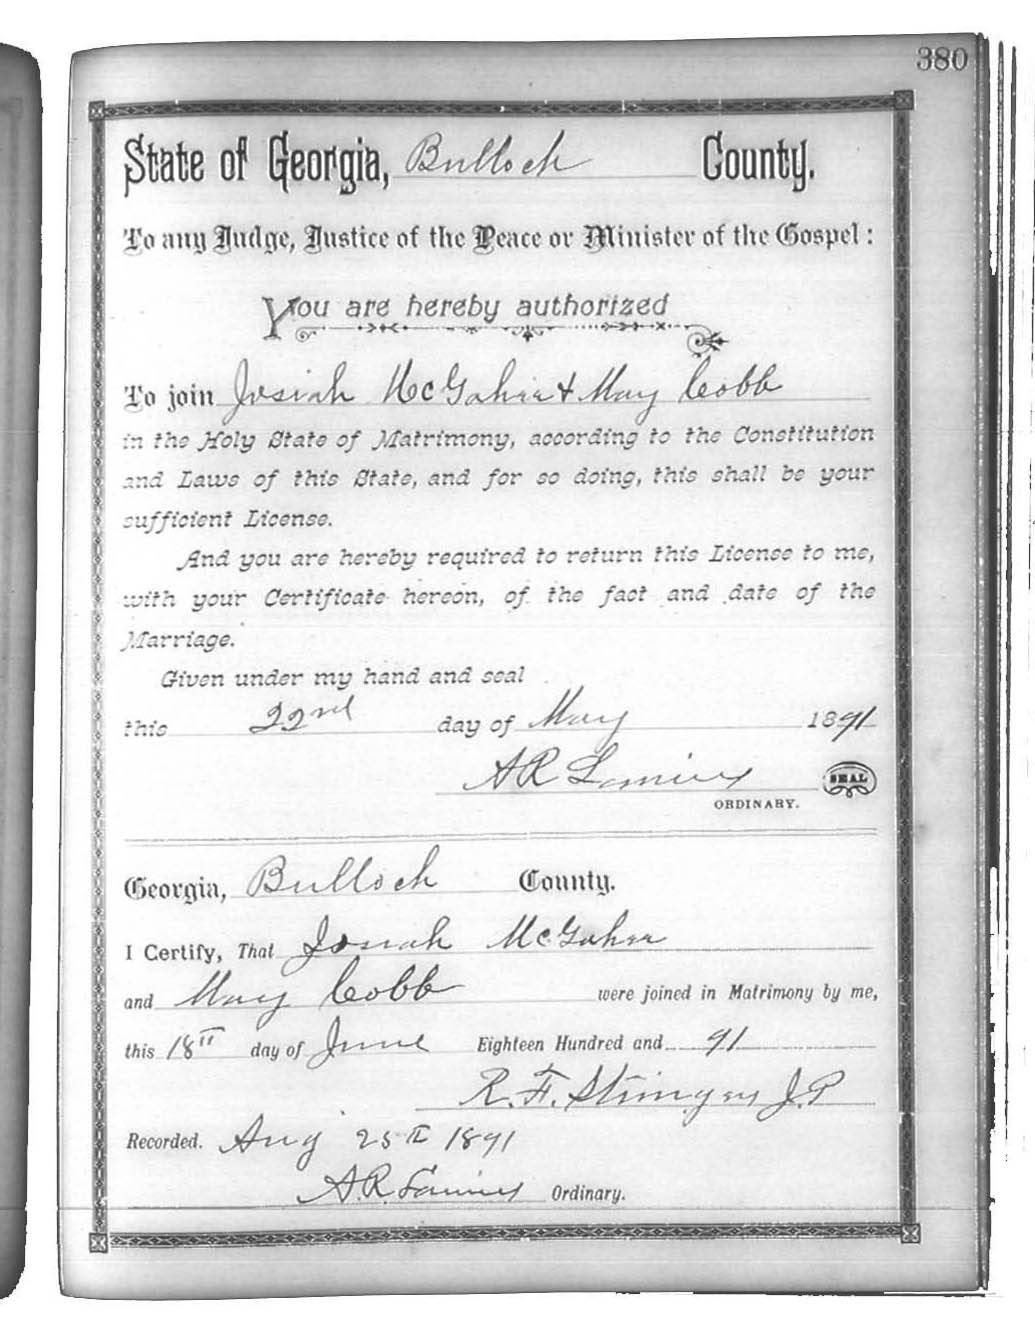 380
State of Georgia, Bulloch County.
To any Judge, Justice of the Peace or Minister of the Gospel:
You are hereby authorized
To join Josiah McGahee & May Cobb
in the Holy State of Matrimony, according to the Constitution
and Laws of this State, and for so doing, this shall be your
sufficient License.
And you are hereby required to return this License to me,
with your Certificate hereon, of the fact and date of the
Marriage.
Given under my hand and seal
this 22nd day of May 1891
A R Lanier SEAL
ORDINARY.
Georgia, Bulloch County.
I Certify, That Josiah McGahee
and May Cobb were joined in Matrimony by me,
this 18th day of June Eighteen Hundred and 91
R. F. Stringer J.P
Recorded. Aug 25th 1891
A.R. Lanier Ordinary.